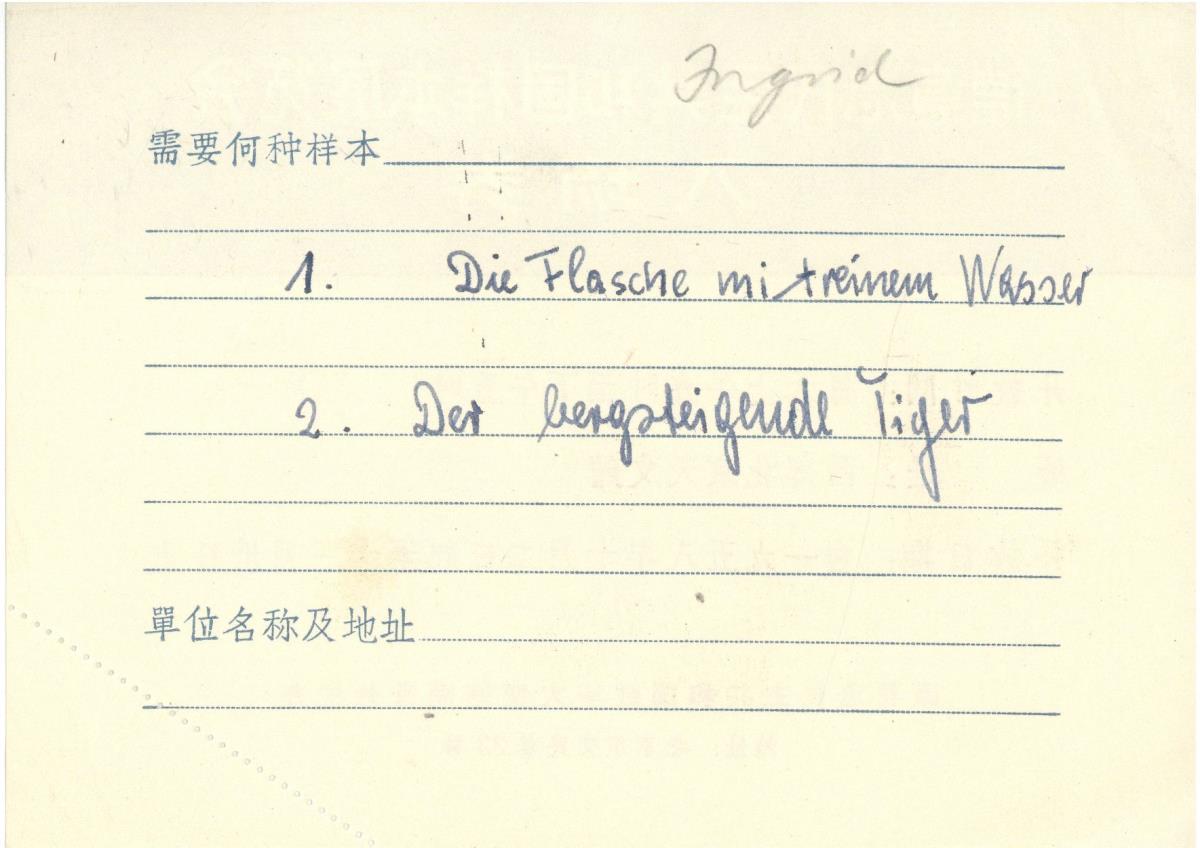 Ingrid
需要何种样本
1. Die Flasche mit reinem Wasser
2. Der bergsteigende Tiger
單位名称及地址